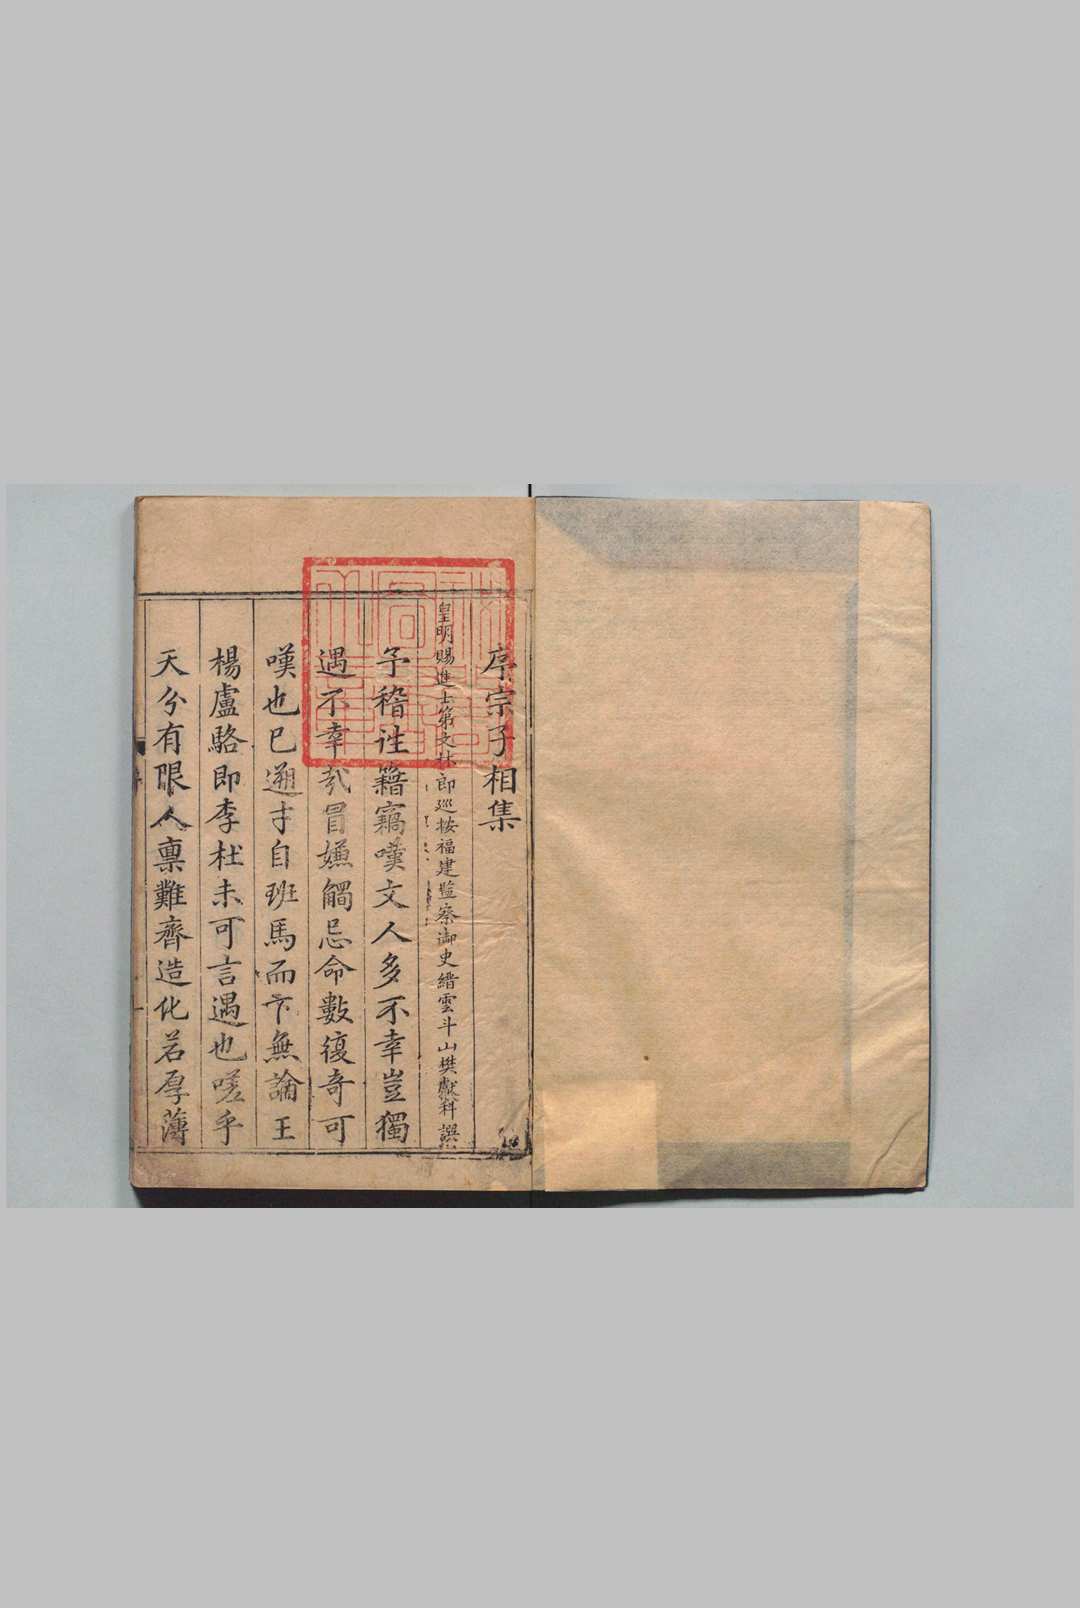 序宗子相集
皇明賜進士第文林郎巡按福建監察御史縉雲斗山樊獻科譔
予稽往籍竊嘆文人多不幸豈獨
遇不幸㢤冒嫌觸忌命數復奇可
嘆也已遡才自班馬而下無論王
楊盧駱即李杜未可言遇也嗟乎
天分有限人稟難齊造化若厚薄